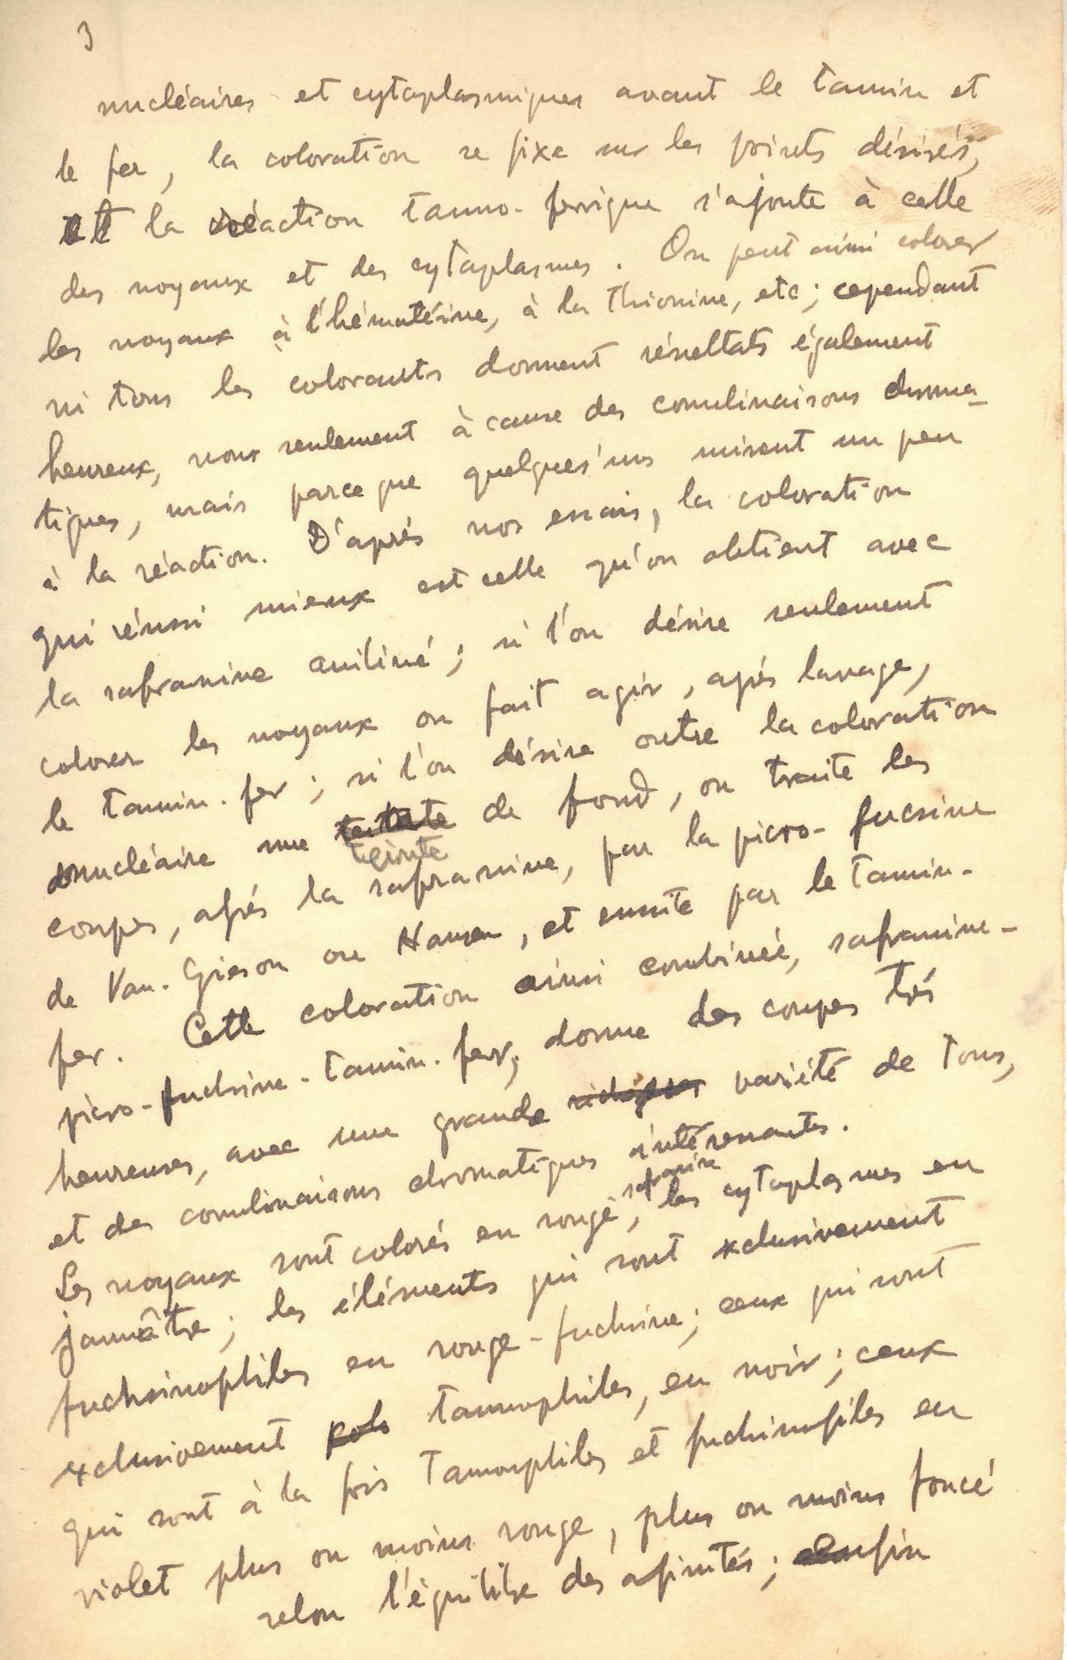 3
nucléaires et cytaplasmiques avant le tannin et
le fer, la coloration se fixe sur les points désirés,
et la réaction tanno-ferrique s'ajoute à celle
des noyaux et des cytaplasmes. On peut aussi colorer
les noyaux à l'hématéine, à la thionine, etc; cependant
ni tous les colorants donnent résultats également
heureux, non seulement à cause des comulinaisons chroma-
tiques, mais parce que quelques'uns nuisent un peu
à la réaction. D'aprés nos essais, la coloration
qui réussi mieux est celle qu'on obtient avec
la safranine aniliné; si l'on désire seulement
colorer les noyaux on fait agir, aprés lavage,
le tannin-fer; si l'on désire outre la coloration
nucléaire une teinte de fond, on traite les
coupes, aprés la safranine, par la picro-fucsine
de Van-Gieson ou Hansen, et ensuite par le tannin-
fer. Cette coloration ainsi combinée, safranine-
picro-fuchsine-tannin-fer, donne des coupes trés
heureuses, avec une grande variété de tons,
et des comulinaisons chromatiques intéressantes.
Les noyaux sont colorés en rouge safranine, les cytaplasmes en
jaunâtre; les éléments qui sont exclusivement
fuchsinophiles en rouge-fuchsine; ceux qui sont
exclusivement tannophiles, en noir; ceux
qui sont à la fois tannophiles et fuchsinofiles en
violet plus ou moins rouge, plus ou moins foncé
selon l'équilibre des afinités; enfin